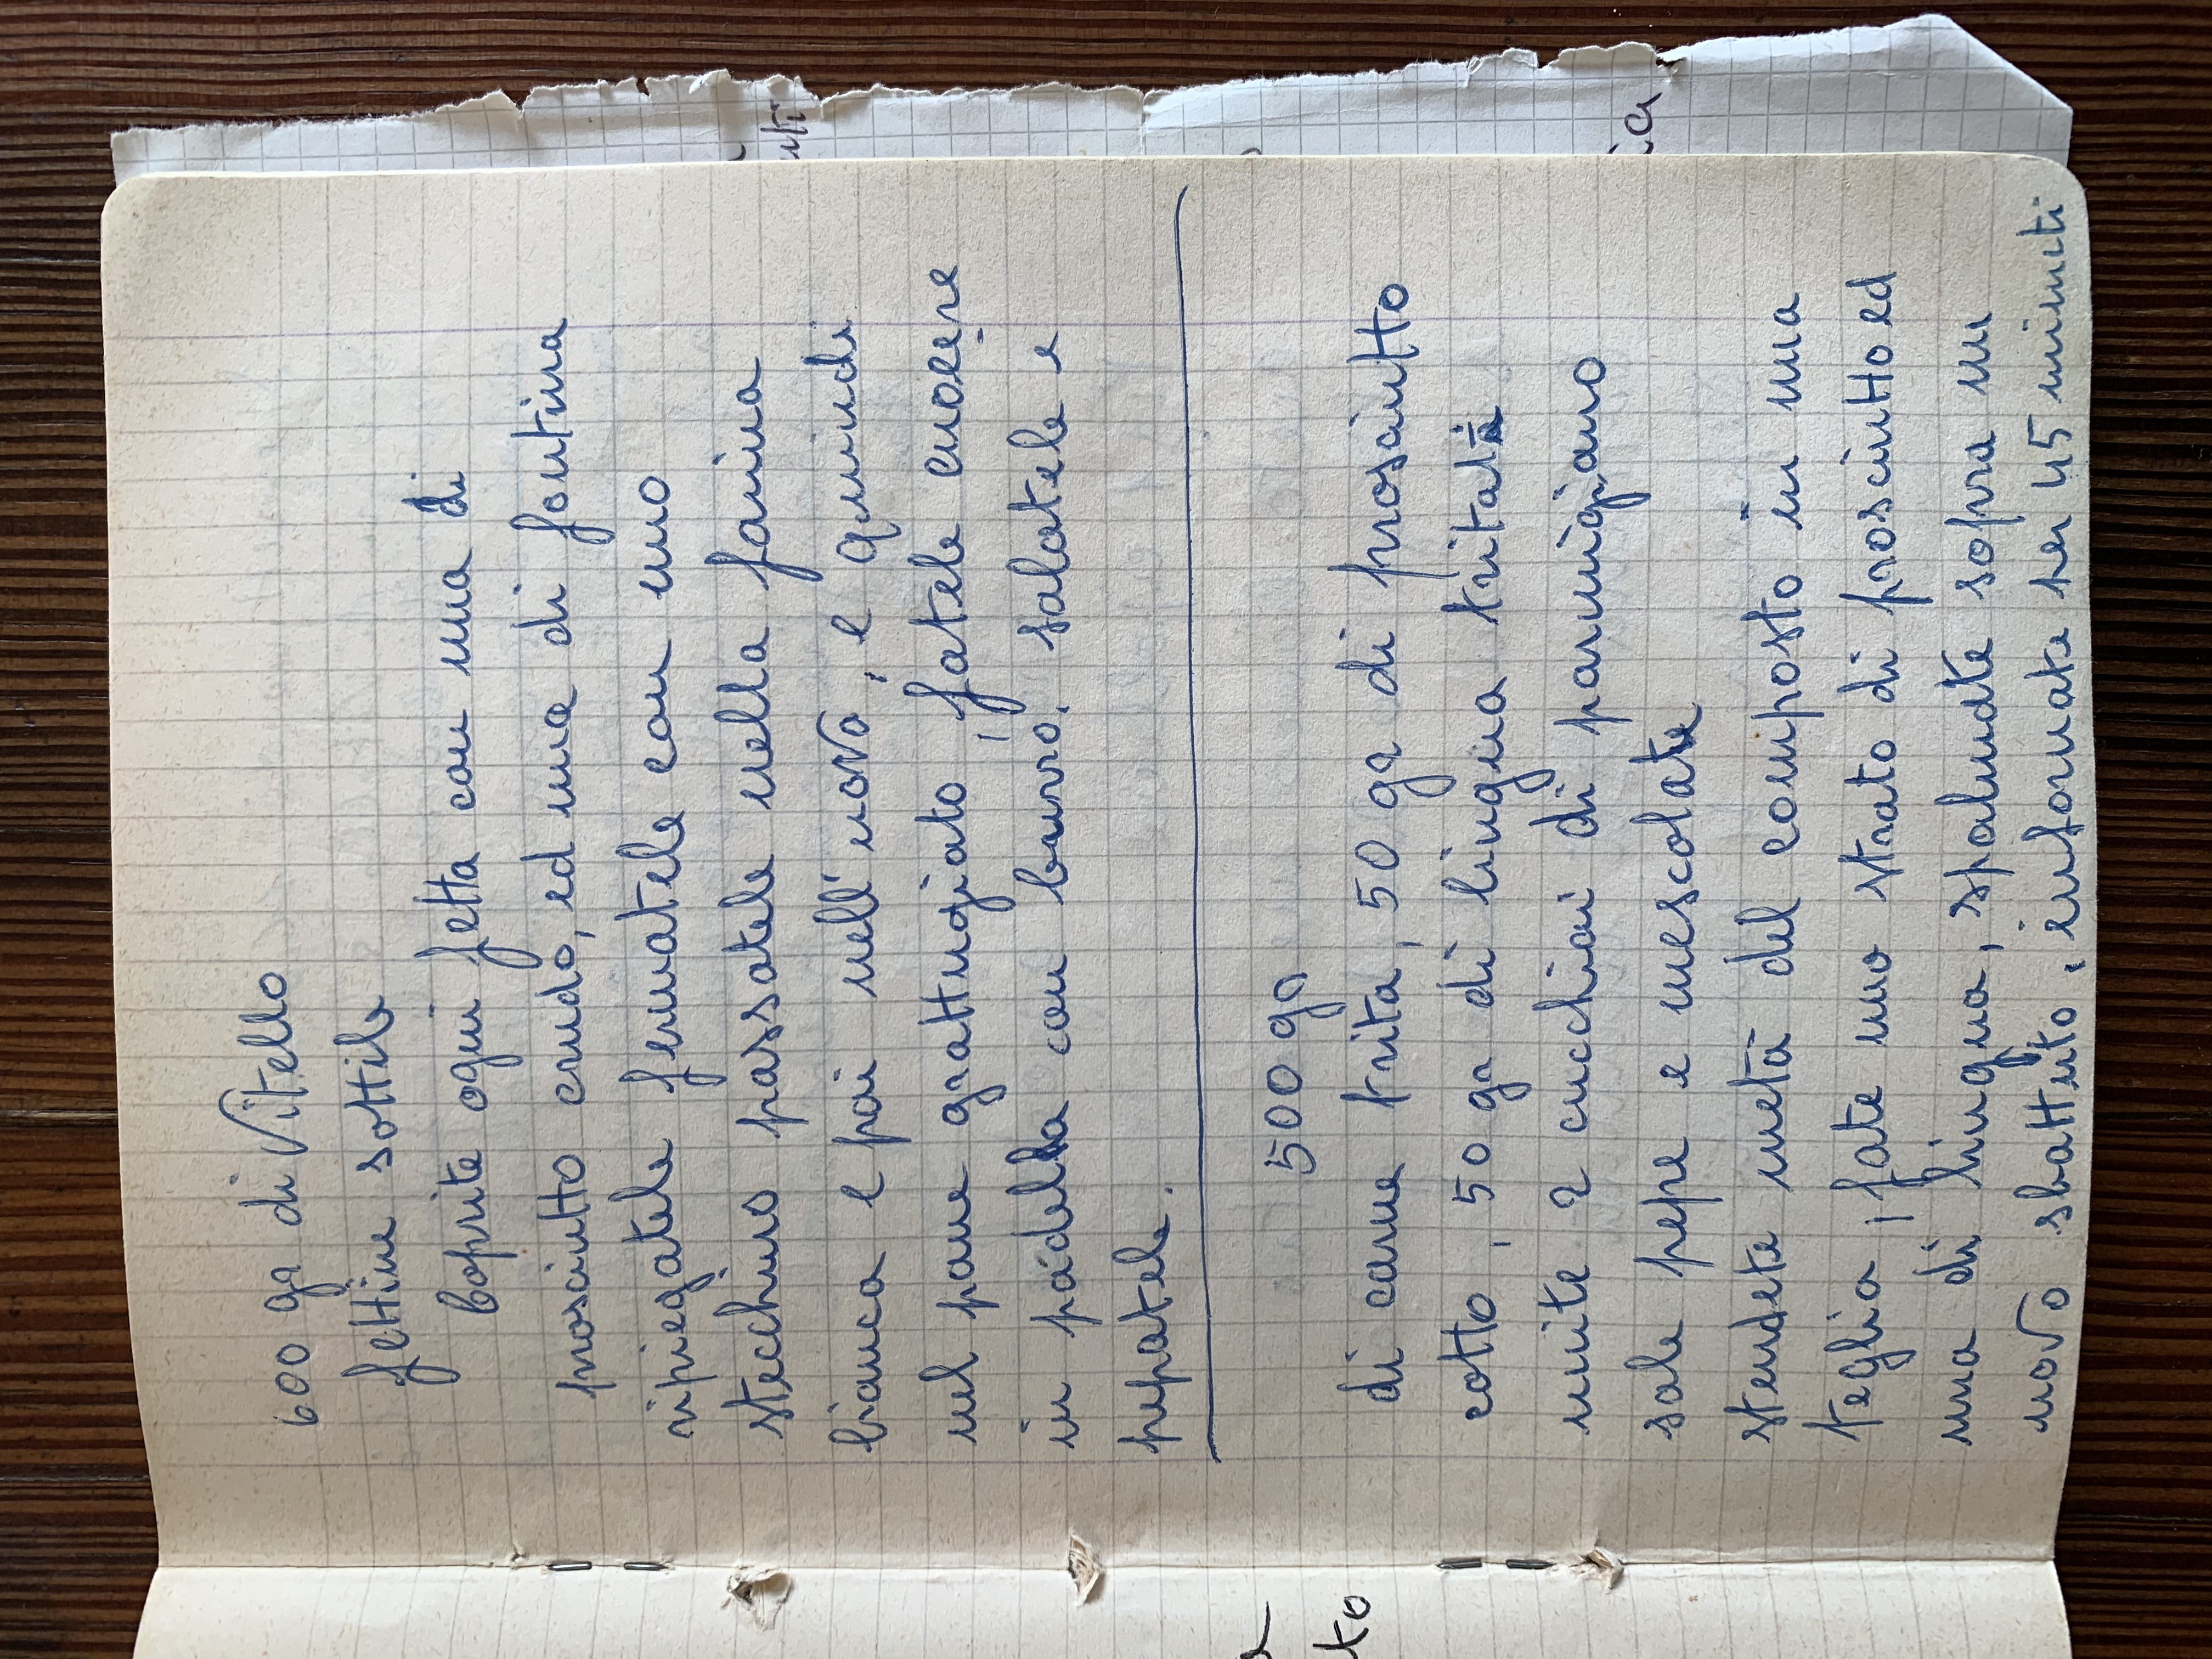 600 gr di Vitello
fettine sottile
Coprite ogni fetta con una di
prosciutto crudo, ed una di fontina
ripiegatele fermatele con uno
stecchino passatele nella farina
bianca e poi nell'uovo, e quindi
nel pane grattugiato, fatele cuocere
in padella con burro. salatele e
pepatele.
500 gr
di carne trita, 50 gr di prosciutto
cotto, 50 gr di lingua tritata
unite 2 cucchiai di parmigiano
sale pepe e mescolate
stendete metà del composto in una
teglia, fate uno strato di prosciutto ed
una di lingua, spalmate sopra un
uovo sbattuto, infornate per 45 minuti